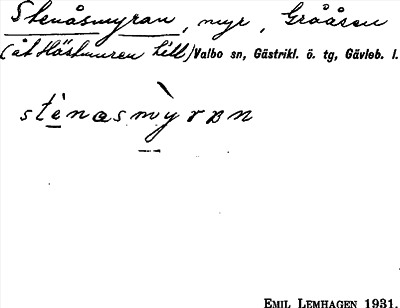 Stenåsmyran, myr, Grååsen
(åt Hästmuren till) Valbo sn, Gästrikl. ö. tg, Gävleb. l.
stènasmỳran
EMIL LEMHAGEN 1931.